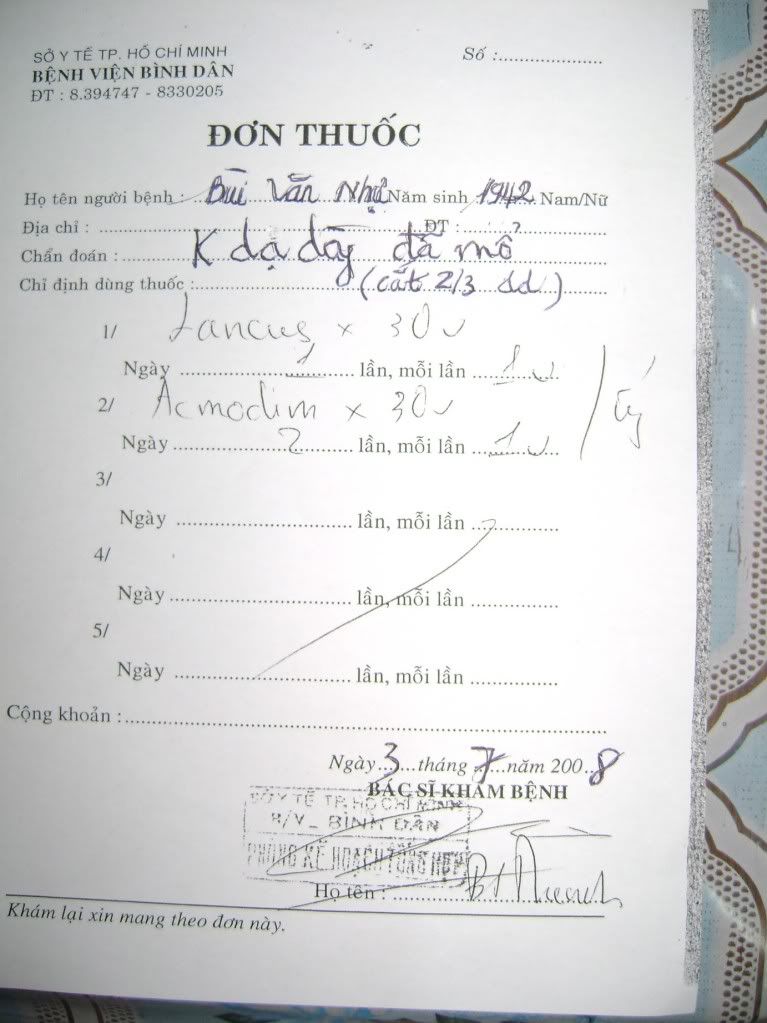 SỞ Y TẾ TP. HỒ CHÍ MINH
BỆNH VIỆN BÌNH DÂN
ĐT : 8.394747 - 8330205
Số :....................
ĐƠN THUỐC
Họ tên người bệnh : Bùi Văn Nhự Năm sinh 1942 Nam/Nữ
Địa chỉ : .......................................... ĐT : ....................
Chẩn đoán : K dạ dày đã mổ
Chỉ định dùng thuốc : (cắt 2/3 dd)
1/ x 30v
Ngày ......1...... lần, mỗi lần ...1 v...
2/ Acmodim x 30v
Ngày ......2...... lần, mỗi lần ...1 v...
3/
Ngày .............................. lần, mỗi lần ...............
4/
Ngày .............................. lần, mỗi lần ...............
5/
Ngày .............................. lần, mỗi lần ...............
Cộng khoản :..............................................................
Ngày 3 tháng 7 năm 2008
BÁC SĨ KHÁM BỆNH
SỞ Y TẾ TP. HỒ CHÍ MINH
B/V_ BÌNH DÂN
PHÒNG KẾ HOẠCH TỔNG HỢP
Họ tên :
Khám lại xin mang theo đơn này.